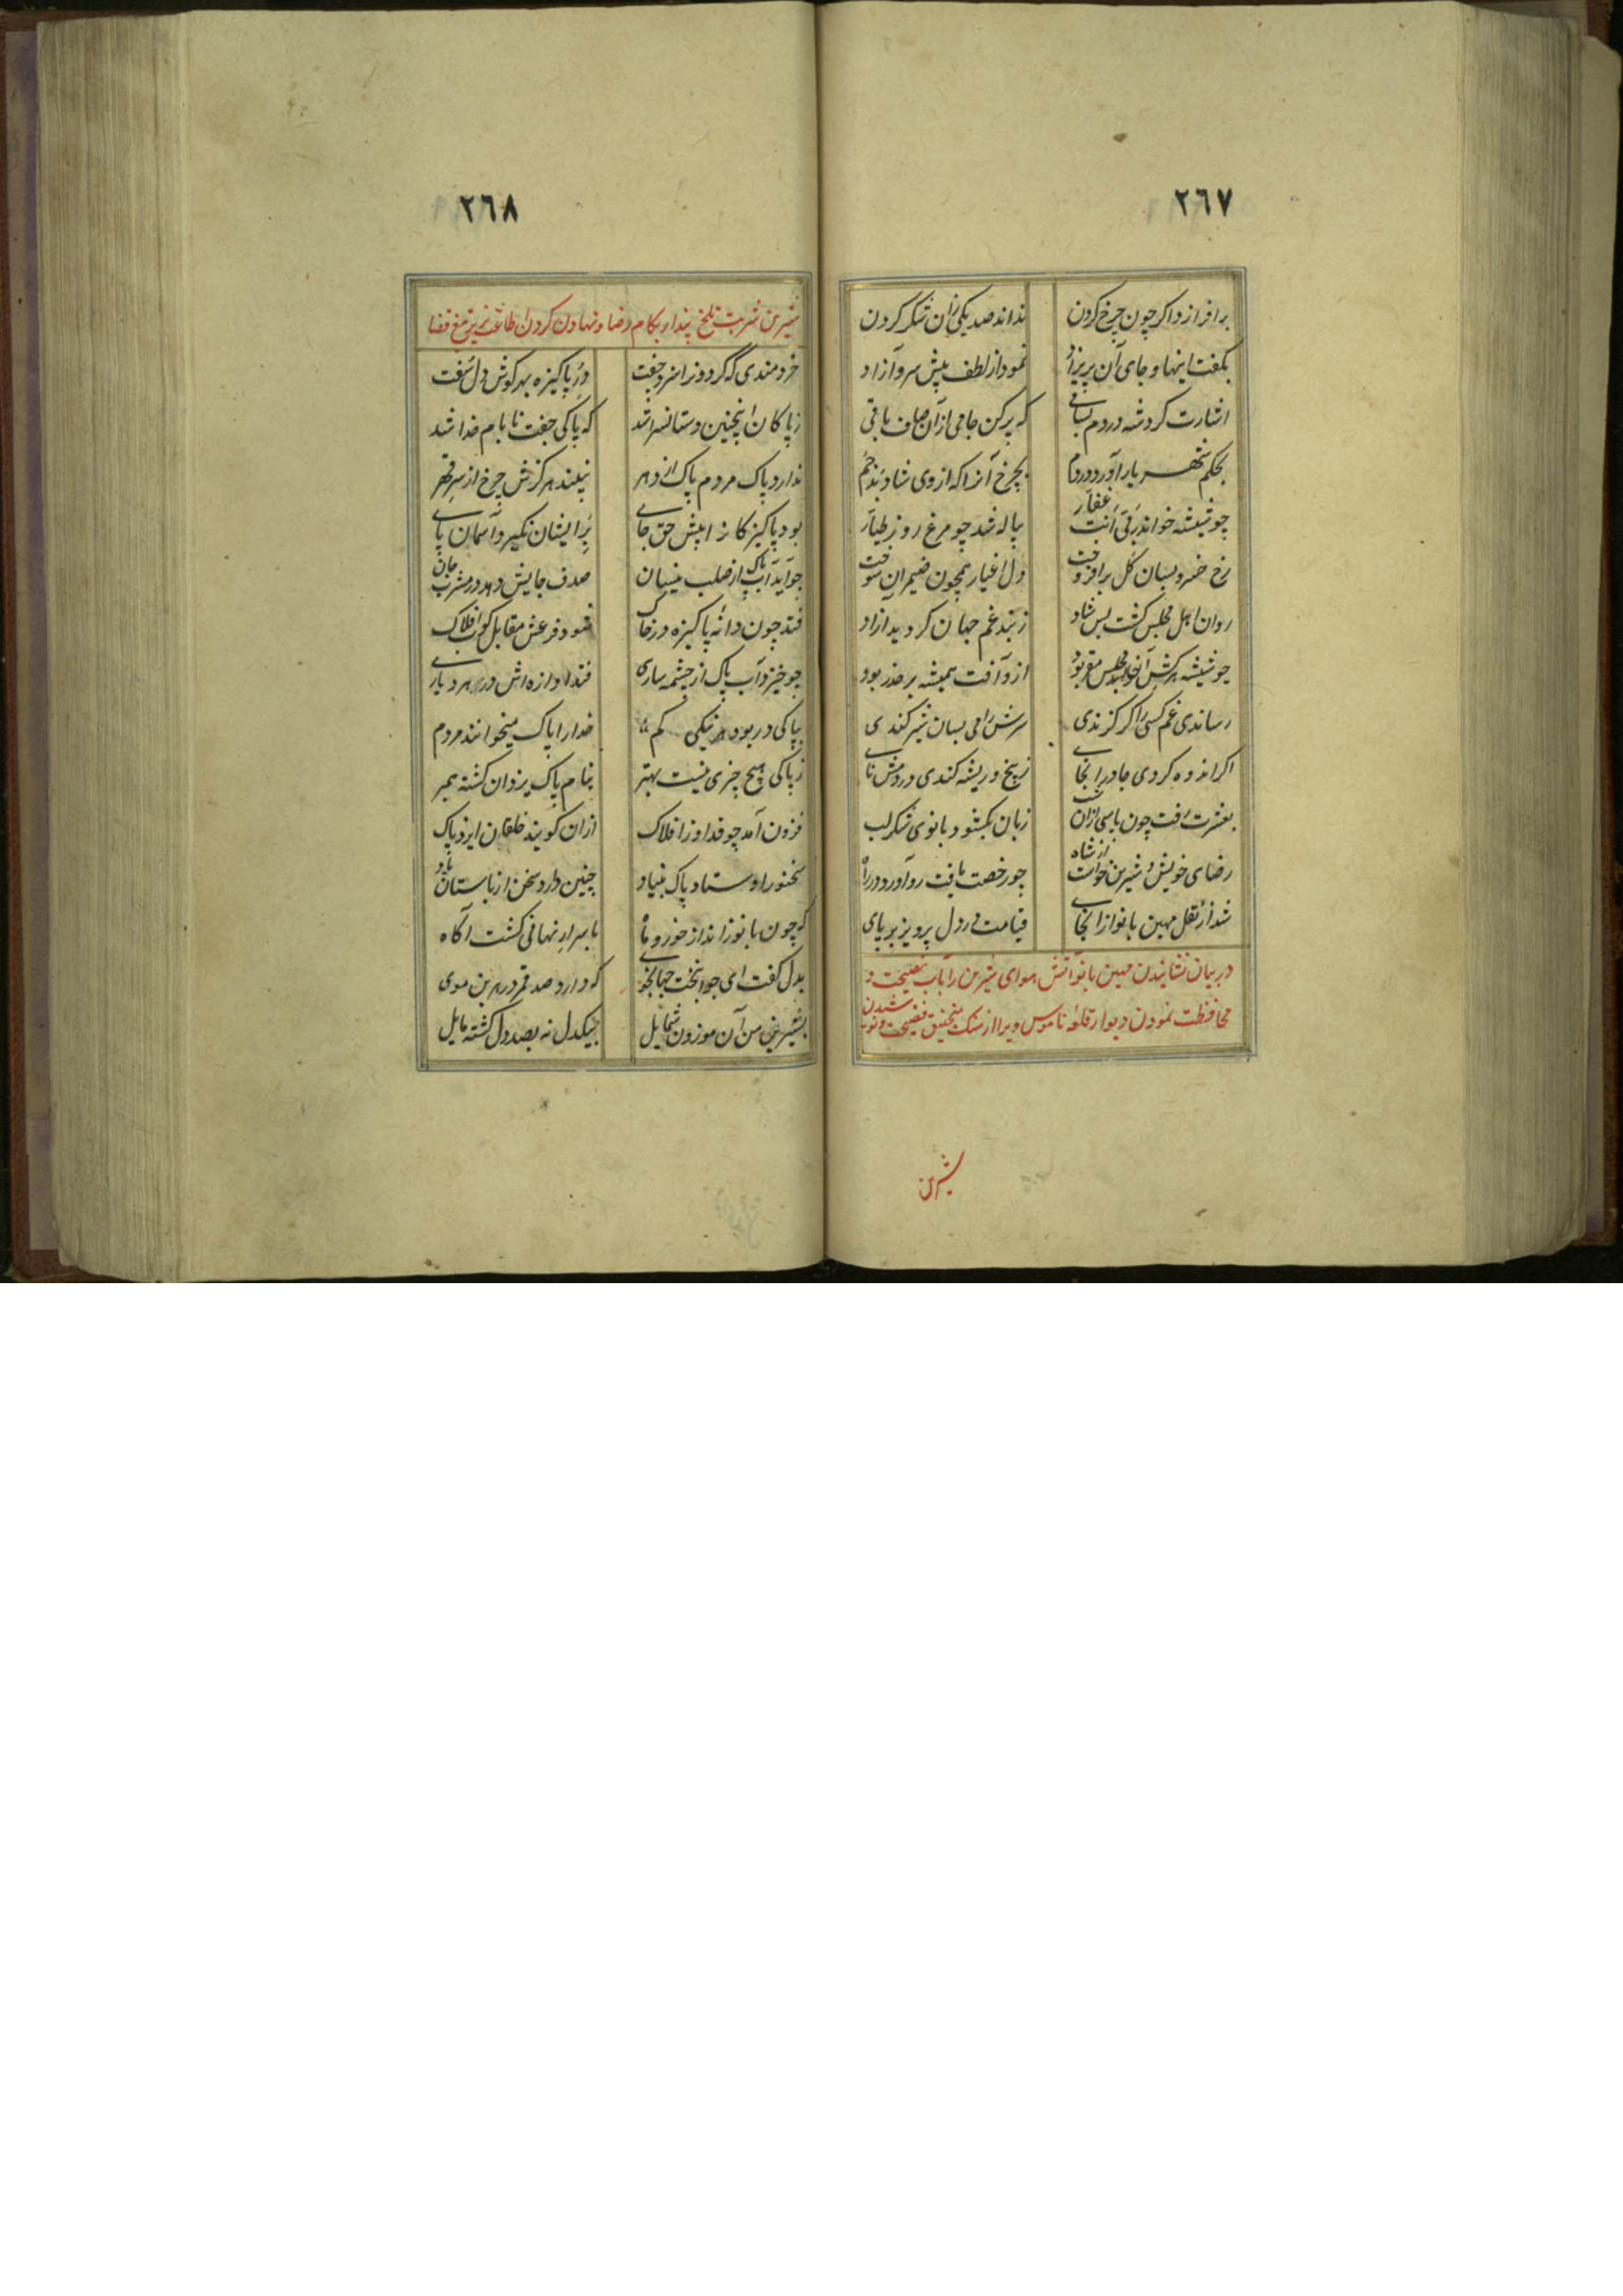 ٢٦٧
برافرازد اگر چون چرخ گردن
نداند صد یکی زان شکر کردن
بگفت اینها و جای آن پریزاد
نمود از لطف پیش سرو آزاد
اشارت کرد شه در دم بساقی
که پر کن جامی از آن صاف باقی
بحکم شهریار آورد در دم
بچرخ آنرا که از وی شاد شد جم
چو شیشه خواند رقی انت غفار
پیاله شد چو مرغ روز طیار
رخ خسرو بسان گل برافروخت
دل اغیار همچون ضیمران سوخت
روان اهل مجلس گشت بس شاد
ز بند غم جهان گردید آزاد
چو شیشه سرکش آنجا بود
ازو آفت همیشه بر حذر بود
رساندی غم کسی را گر گزندی
سرش را می بسان شیر کندی
اگر اندوه کردی جا در آنجای
ز بیخ و ریشه کندی در دمش نای
بعشرت رفت چون پاسی از آن شب
زبان بگشود بانوی شکر لب
رضای خویش و شیرین خواست از شاه
چو رخصت یافت رو آورد در راه
شد از نقل مهین بانو از آنجای
قیامت در دل پرویز بر پای
در بیان نشانیدن مهین بانو آتش هوای شیرین را بآب نصیحت و
محافظت نمودن دیوار قلعه ناموس ویرا از سنگ منجنیق فضیحت و شدن
شیرین
٢٦٨
شیرین شربت تلخ پندار بکام رضا و نهادن گردن طاعت زیر تیغ قضا
خردمندی که گردونرا سزد جفت
در پاکیزه بهر گوش دل سفت
ز پاکان اینچنین دستانسرا شد
که پاکی جفت با نام خدا شد
ندارد پاک مردم پاک از دهر
نبیند هرگزش چرخ از سر قهر
بود پاکیزگانرا پیش حق جای
بر ایشان نگیرد آسمان پای
چو آید آب پاک از صلب نیسان
صدف جایش دهد در مشرب جان
فتد چون دانه پاکیزه در خاک
شود فرعش مقابل کوب افلاک
چو خیزد آب پاک از چشمه ساری
فتد آوازه اش در هر دیاری
بپاکی در بود هر نیکیی گم
خدا را پاک میخوانند مردم
ز پاکی هیچ چیزی نیست بهتر
بنام پاک یزدان گشته همبر
فزون آمد چو قدر او ز افلاک
ازان گویند خلقان ایزد پاک
سخنور اوستاد پاک بنیاد
چنین دارد سخن از باستان یاد
که چون بانو ز انداز خور و ماه
باسرار نهانی گشت آگاه
بدل گفت ای جوانبخت جهانجوی
که دارد صد قمر در هر بن موی
بشیرین من آن موزون شمایل
بیکدل نه بصد دل گشته مایل